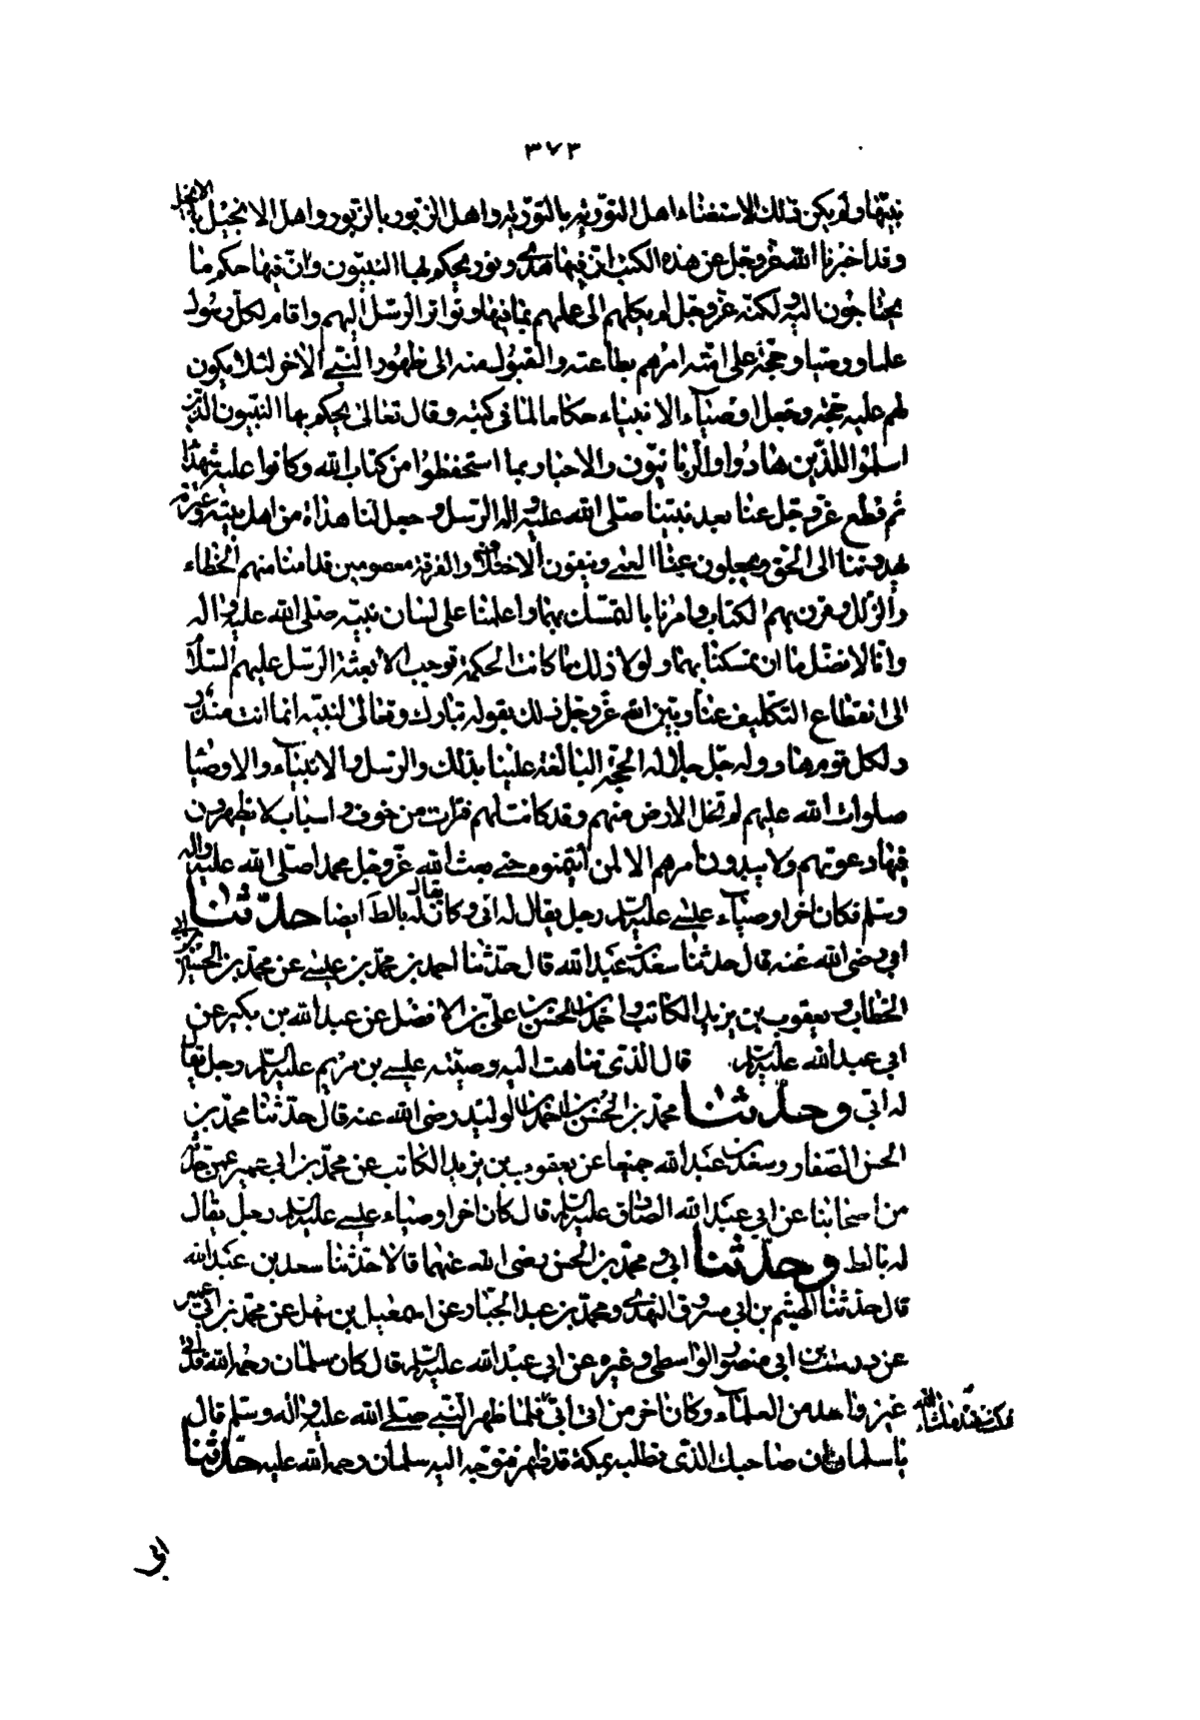 ٣٧٣
نبيّها ولم يكن ذلك الاستغناء اهل التورية بالتورية واهل الزبور بالزبور واهل الانجيل بالانجيل
وقد اخبرنا الله عزّ وجل عن هذه الكتب انّ فيها هدى ونور يحكم بها النبيّون وانّ فيها حكم ما
يحتاجون اليه ولكنّه عزّ وجل لم يكلهم الى علمهم بما فيها وتواتر الرسل اليهم واقام لكل رسول
علما ووصيا وحجّة على امّته امرهم بطاعته والقبول منه الى ظهور النبي الاخر لئلا يكون
لهم عليه حجّة وجعل اوصياء الانبياء حكاما لما فى كتبه وقال تعالى يحكم بها النبيّون الذين
اسلموا اللذين هادوا والربانيّون والاحبار بما استحفظوا من كتاب الله وكانوا عليه شهداء
ثم قطع عزّ وجل عنا بعد نبيّنا صلى الله عليه واله الرسل وجعل لنا هداة من اهل بيته وعترته
يهدوننا الى الحق ويجلون عنّا العمى وينفون الاختلاف والفرقة معصومين قد امنا منهم الخطاء
والزلل وقرن بهم الكتاب وامرنا بالتمسّك بهما واعلمنا على لسان نبيّه صلى الله عليه واله
وانّا لا نضلّ ما ان تمسكنا بهما ولولا ذلك ما كانت الحكمة توجب الا بعثة الرسل عليهم السّلام
الى انقطاع التكليف عنا وبيّن الله عزّ وجل ذلك بقوله تبارك وتعالى لنبيّه انما انت منذر
ولكل قوم هاد ولله جل جلاله الحجّة البالغة علينا بذلك والرسل والانبياء والاوصياء
صلوات الله عليهم لم تخل الارض منهم وقد كانت لهم فترات من خوف واسباب لا يظهرون
فيها دعوتهم ولا يبدون امرهم الا لمن ائتمنوه حتى بعث الله عزّ وجل محمدا صلّى الله عليه واله
وسلم فكان اخر اوصياء عيسى عليه السلم رجل يقال له ابى وكان يقال له بالط ايضا حدّثنا
ابى رضى الله عنه قال حدثنا سعد بن عبد الله قال حدّثنا احمد بن محمّد بن عيسى عن محمّد بن الحسين بن ابى
الخطاب ويعقوب بن يزيد الكاتب واحمد بن الحسن بن على بن الافضل عن عبد الله بن بكير عن
ابى عبد الله عليه السلم قال الذى تناهت اليه وصيّة عيسى بن مريم عليه السلم رجل يقال
له ابى وحدّثنا محمّد بن الحسن بن احمد بن الوليد رضى الله عنه قال حدّثنا محمّد بن
الحسن الصّفار وسعد بن عبد الله جميعا عن يعقوب بن يزيد الكاتب عن محمّد بن ابى عمير عمن حدّثه
من اصحابنا عن ابى عبد الله الصادق عليه السلم قال كان اخر اوصياء عيسى عليه السلم رجل يقال
له بالط وحدّثنا ابى ومحمّد بن الحسن رضى الله عنهما قالا حدّثنا سعد بن عبد الله
قال حدّثنا الهيثم بن ابى مسروق النهدى ومحمّد بن عبد الجبّار عن اسمعيل بن سهل عن محمّد بن ابى عمير
عن درست بن ابى منصور الواسطى وغيره عن ابى عبد الله عليه السلم قال كان سلمان رحمه الله قد اتى
غير واحد من العلماء وكان اخر من اتى ابى فلما ظهر النبى صلى الله عليه واله وسلم قال
يا سلمان ان صاحبك الذى تطلبه بمكة قد ظهر فتوجه اليه سلمان رحمه الله عليه حدّثنا
فمكث عنده ما شاء الله
ابى